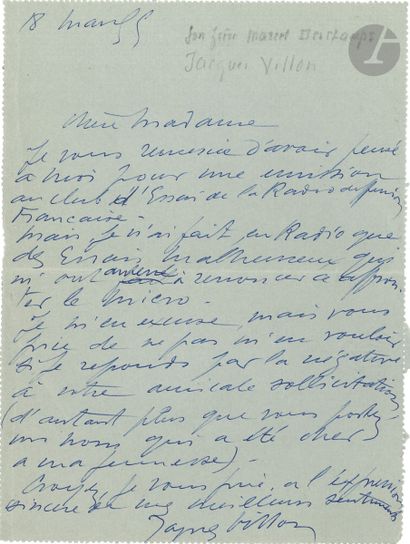 18 mars 55
son frère Marcel Duchamps
Jacques Villon
Chère Madame
Je vous remercie d'avoir pensé
à moi pour une émission
au club d'Essai de la Radiodiffusion
Française -
Mais je n'ai fait en Radio que
des Essais malheureux qui
m'ont amené à renoncer à affron-
ter le micro -
Je m'en excuse, mais vous
prie de ne pas m'en vouloir
si je réponds par la négative
à votre amicale sollicitation
(d'autant plus que vous portez
un nom qui a été cher
a ma jeunesse) -
Croyez, je vous prie, a l'expression
sincère de mes meilleurs sentiments
Jacques Villon